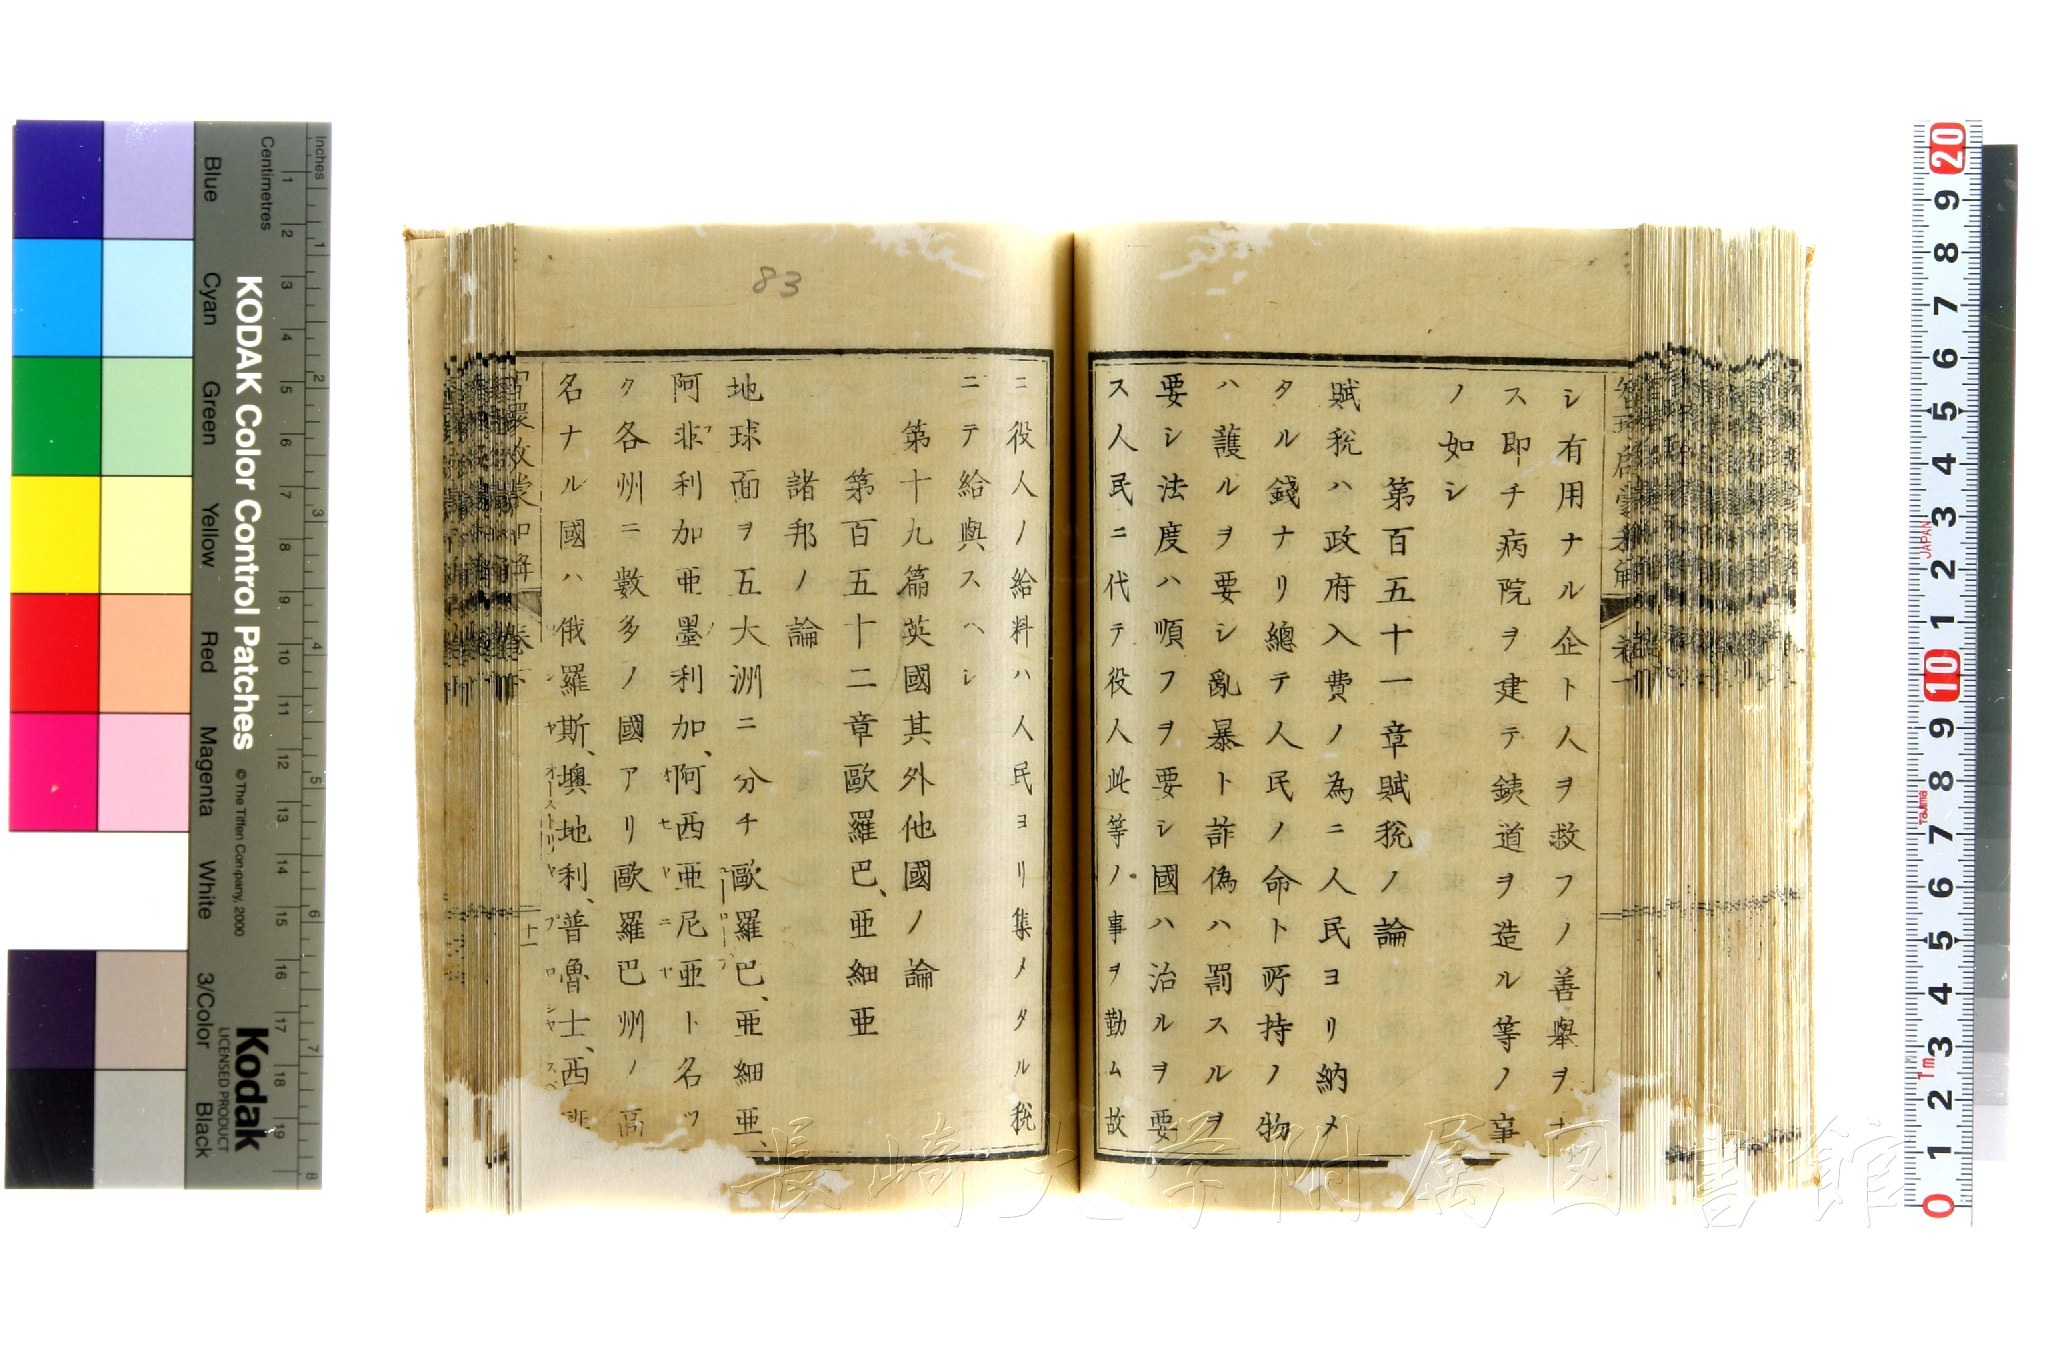 シ有用ナル企ト人ヲ救フノ善舉ヲナ
ス即チ病院ヲ建テ銕道ヲ造ル等ノ事
ノ如シ
第百五十一章賦稅ノ論
賦稅ハ政府入費ノ為ニ人民ヨリ納メ
タル錢ナリ總テ人民ノ命ト所持ノ物
ハ護ルヲ要シ亂暴ト詐偽ハ罰スルヲ
要シ法度ハ順フヲ要シ國ハ治ルヲ要
ス人民ニ代テ役人此等ノ事ヲ勤ム故
ニ役人ノ給料ハ人民ヨリ集メタル稅
ニテ給與スヘシ
第十九篇英國其外他國ノ論
第百五十二章歐羅巴、亜細亜
諸邦ノ論
地球面ヲ五大洲ニ分チ歐羅巴、亜細亜、
阿非利加亜墨利加、阿西亜尼亜ト名ツ
ク各州ニ數多ノ國アリ歐羅巴州ノ高
名ナル國ハ俄羅斯、墺地利、普魯士、西
オーストリヤ
プロシヤ
十一
83
KODAK Color Control Patches
© The Tiffen Company, 2000
Kodak
LICENSED PRODUCT
Inches
Centimetres
Blue
Cyan
Green
Yellow
Red
Magenta
White
3/Color
Black
JAPAN
Tajima
長崎大学附属図書館